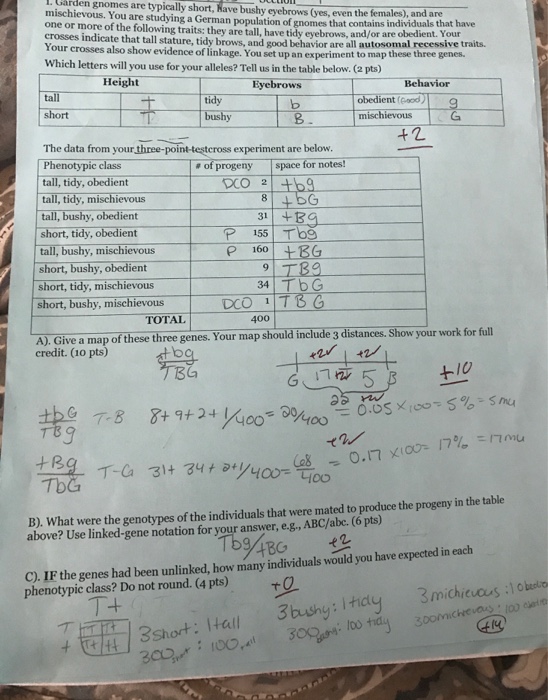 1. Garden gnomes are typically short, have bushy eyebrows (yes, even the females), and are
mischievous. You are studying a German population of gnomes that contains individuals that have
one or more of the following traits: they are tall, have tidy eyebrows, and/or are obedient. Your
crosses indicate that tall stature, tidy brows, and good behavior are all autosomal recessive traits.
Your crosses also show evidence of linkage. You set up an experiment to map these three genes.
Which letters will you use for your alleles? Tell us in the table below. (2 pts)
Height Eyebrows Behavior
tall t tidy b obedient (Good) g
short T bushy B mischievous G
+2
The data from your three-point-testcross experiment are below.
Phenotypic class # of progeny space for notes!
tall, tidy, obedient DCO 2 tbg
tall, tidy, mischievous 8 tbG
tall, bushy, obedient 31 tBg
short, tidy, obedient P 155 Tbg
tall, bushy, mischievous P 160 tBG
short, bushy, obedient 9 TBg
short, tidy, mischievous 34 TbG
short, bushy, mischievous DCO 1 TBG
TOTAL 400
A). Give a map of these three genes. Your map should include 3 distances. Show your work for full
credit. (10 pts)
tbg
TBG
+2 +2
G 17 T 5 B
22 +2
+10
tbG
TBg
T-B 8+9+2+1/400 = 20/400 = 0.05 x 100 = 5% = 5mu
+2
tBg
TbG
T-G 31+34+2+1/400 = 68/400 = 0.17 x 100 = 17% = 17mu
B). What were the genotypes of the individuals that were mated to produce the progeny in the table
above? Use linked-gene notation for your answer, e.g., ABC/abc. (6 pts)
Tbg/tBG +2
C). IF the genes had been unlinked, how many individuals would you have expected in each
phenotypic class? Do not round. (4 pts)
+0
T t
T TT Tt
t Tt tt
3 short : 1 tall
300 short : 100 tall
3 bushy : 1 tidy
300 bushy : 100 tidy
3 michievous : 1 obedient
300 michievous : 100
+14